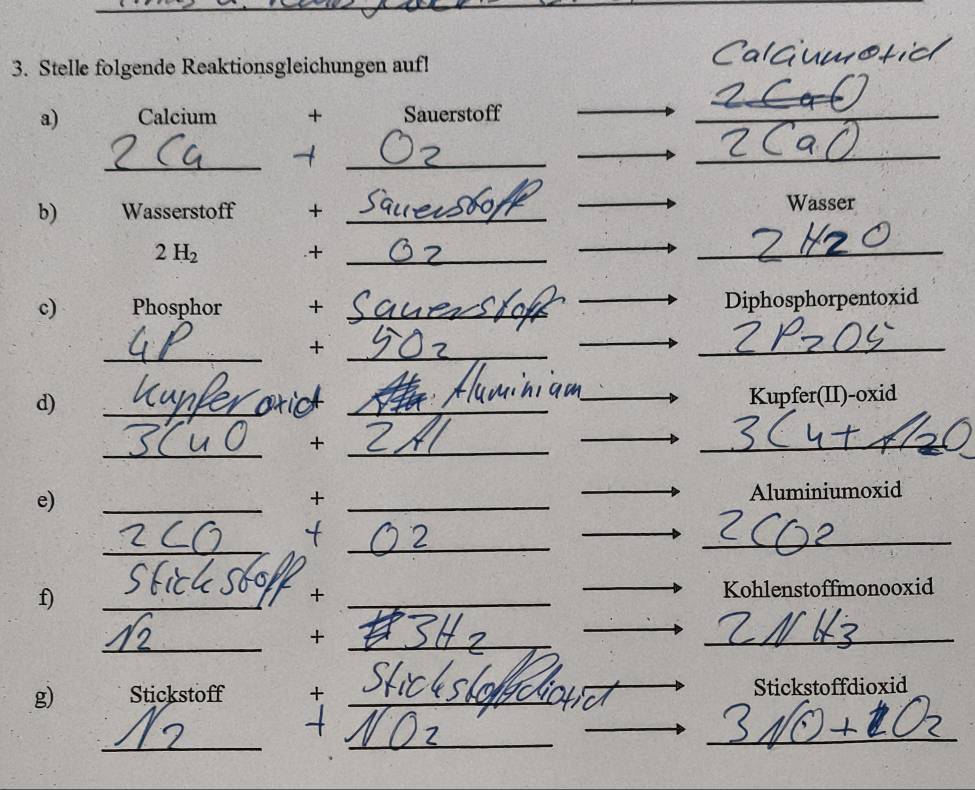 3. Stelle folgende Reaktionsgleichungen auf!
Calciumoxid
2 CaO
a) Calcium + Sauerstoff →
2 Ca + O2 → 2 CaO
b) Wasserstoff + Sauerstoff → Wasser
2 H₂ + O2 → 2 H2O
c) Phosphor + Sauerstoff → Diphosphorpentoxid
4P + 5O2 → 2 P2O5
d) Kupferoxid Aluminium → Kupfer(II)-oxid
3CuO + 2 Al → 3Cu + Al2O
e) + → Aluminiumoxid
2 CO + O2 → 2CO2
f) Stickstoff + → Kohlenstoffmonooxid
N2 + 3H2 → 2 NH3
g) Stickstoff + Stickstoffdioxid → Stickstoffdioxid
N2 + NO2 → 3 NO + O2